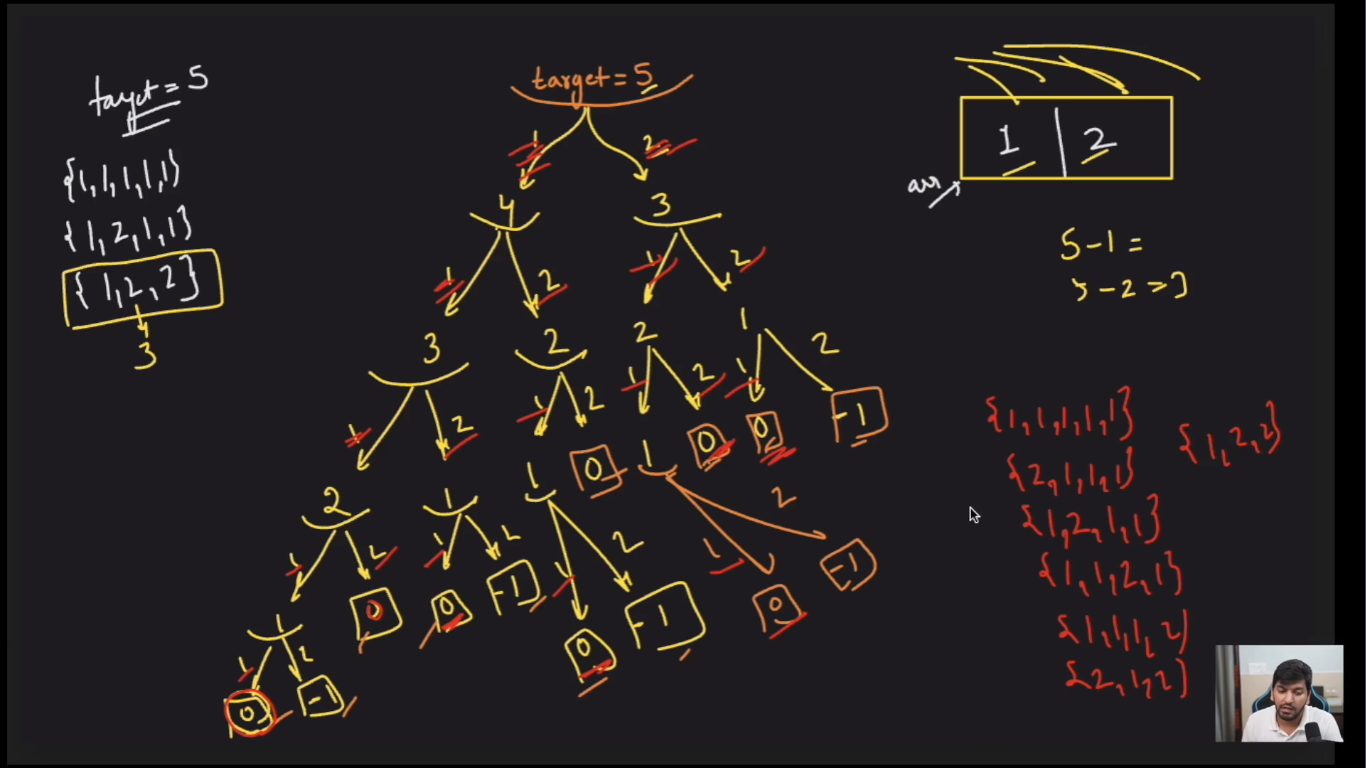 target = 5
{1,1,1,1,1}
{1,2,1,1}
{1,2,2}
3
target = 5
1 2
4 3
1 2 1 2
3 2 2 1
1 2 1 2 1 2 1 2
2 1 1 0 1 0 0 -1
1 2 1 2 1 2 1 2
1 0 0 -1 0 -1 0 -1
1 2
0 -1
1 | 2
arr
5-1=
5-2=3
{1,1,1,1,1}
{1,2,2}
{2,1,1,1}
{1,2,1,1}
{1,1,2,1}
{1,1,1,2}
{2,1,2}